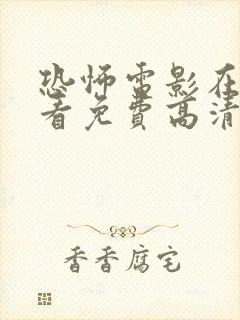 恐怖电影在
看免费高清
香香腐宅